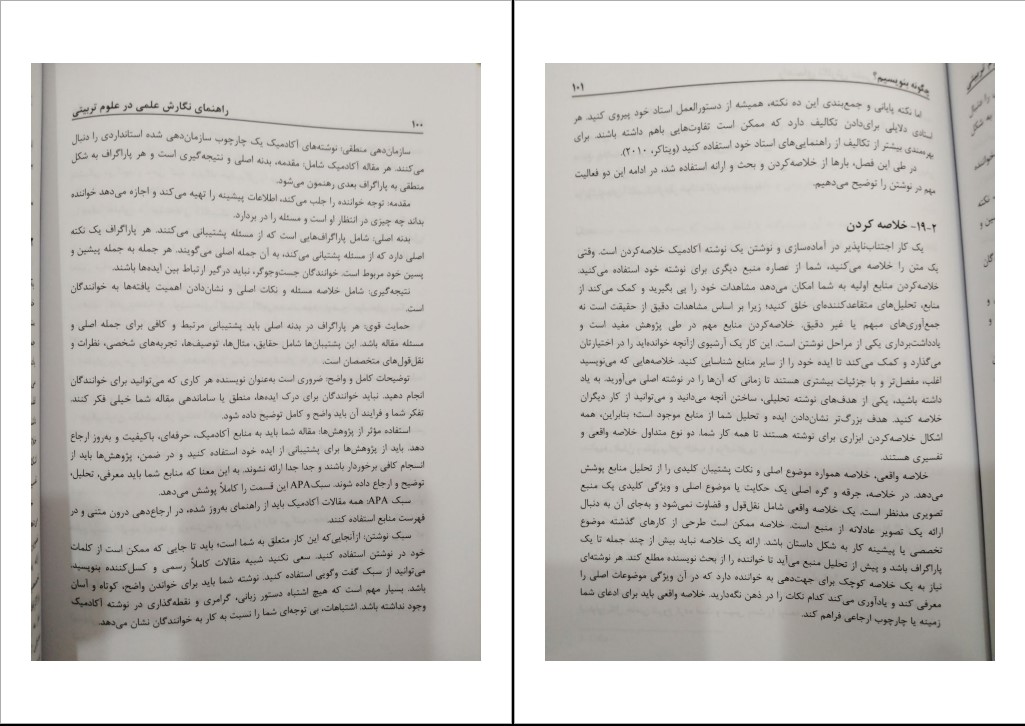 راهنمای نگارش علمی در علوم تربیتی
۱۰۰
سازمان‌دهی منطقی: نوشته‌های آکادمیک یک چارچوب سازمان‌دهی شده استانداردی را دنبال
می‌کنند. هر مقاله آکادمیک شامل: مقدمه، بدنه اصلی و نتیجه‌گیری است و هر پاراگراف به شکل
منطقی به پاراگراف بعدی رهنمون می‌شود.
مقدمه: توجه خواننده را جلب می‌کند، اطلاعات پیشینه را تهیه می‌کند و اجازه می‌دهد خواننده
بداند چه چیزی در انتظار او است و مسئله را در بردارد.
بدنه اصلی: شامل پاراگراف‌هایی است که از مسئله پشتیبانی می‌کنند. هر پاراگراف یک نکته
اصلی دارد که از مسئله پشتیانی می‌کند، به آن جمله اصلی می‌گویند. هر جمله به جمله پیشین و
پسین خود مربوط است. خوانندگان جست‌وجوگر، نباید درگیر ارتباط بین ایده‌ها باشند.
نتیجه‌گیری: شامل خلاصه مسئله و نکات اصلی و نشان‌دادن اهمیت یافته‌ها به خوانندگان
است.
حمایت قوی: هر پاراگراف در بدنه اصلی باید پشتیبانی مرتبط و کافی برای جمله اصلی و
مسئله مقاله باشد. این پشتیبان‌ها شامل حقایق، مثال‌ها، توصیف‌ها، تجربه‌های شخصی، نظرات و
نقل‌قول‌های متخصصان است.
توضیحات کامل و واضح: ضروری است به‌عنوان نویسنده هر کاری که می‌توانید برای خوانندگان
انجام دهید. نباید خوانندگان برای درک ایده‌ها، منطق یا ساماندهی مقاله شما خیلی فکر کنند.
تفکر شما و فرایند آن باید واضح و کامل توضیح داده شود.
استفاده مؤثر از پژوهش‌ها: مقاله شما باید به منابع آکادمیک، حرفه‌ای، باکیفیت و به‌روز ارجاع
دهد. باید از پژوهش‌ها برای پشتیبانی از ایده خود استفاده کنید و در ضمن، پژوهش‌ها باید از
انسجام کافی برخوردار باشند و جدا جدا ارائه نشوند. به این معنا که منابع شما باید معرفی، تحلیل،
توضیح و ارجاع داده شوند. سبک APA این قسمت را کاملاً پوشش می‌دهد.
سبک APA: همه مقالات آکادمیک باید از راهنمای به‌روز شده، در ارجاع‌دهی درون متنی و در
فهرست منابع استفاده کنند.
سبک نوشتن: ازآنجایی‌که این کار متعلق به شما است؛ باید تا جایی که ممکن است از کلمات
خود در نوشتن استفاده کنید. سعی نکنید شبیه مقالات کاملاً رسمی و کسل‌کننده بنویسید،
می‌توانید از سبک گفت وگویی استفاده کنید. نوشته شما باید برای خواندن واضح، کوتاه و آسان
باشد. بسیار مهم است که هیچ اشتباه دستور زبانی، گرامری و نقطه‌گذاری در نوشته آکادمیک
وجود نداشته باشد. اشتباهات، بی توجه‌ای شما را نسبت به کار به خوانندگان نشان می‌دهد.
چگونه بنویسیم؟
۱۰۱
اما نکته پایانی و جمع‌بندی این ده نکته، همیشه از دستورالعمل استاد خود پیروی کنید. هر
استادی دلایلی برای‌دادن تکالیف دارد که ممکن است تفاوت‌هایی باهم داشته باشند. برای
بهره‌مندی بیشتر از تکالیف از راهنمایی‌های استاد خود استفاده کنید (ویتاکر، ۲۰۱۰).
در طی این فصل، بارها از خلاصه‌کردن و بحث و ارائه استفاده شد، در ادامه این دو فعالیت
مهم در نوشتن را توضیح می‌دهیم.
۲-۱۹- خلاصه کردن
یک کار اجتناب‌ناپذیر در آماده‌سازی و نوشتن یک نوشته آکادمیک خلاصه‌کردن است. وقتی
یک متن را خلاصه می‌کنید، شما از عصاره منبع دیگری برای نوشته خود استفاده می‌کنید.
خلاصه‌کردن منابع اولیه به شما امکان می‌دهد مشاهدات خود را پی بگیرید و کمک می‌کند از
منابع، تحلیل‌های متقاعدکننده‌ای خلق کنید؛ زیرا بر اساس مشاهدات دقیق از حقیقت است نه
جمع‌آوری‌های مبهم یا غیر دقیق. خلاصه‌کردن منابع مهم در طی پژوهش مفید است و
یادداشت‌برداری یکی از مراحل نوشتن است. این کار یک آرشیوی ازآنچه خوانده‌اید را در اختیارتان
می‌گذارد و کمک می‌کند تا ایده خود را از سایر منابع شناسایی کنید. خلاصه‌هایی که می‌نویسید
اغلب، مفصل‌تر و با جزئیات بیشتری هستند تا زمانی که آن‌ها را در نوشته اصلی می‌آورید. به یاد
داشته باشید، یکی از هدف‌های نوشته تحلیلی، ساختن آنچه می‌دانید و می‌توانید از کار دیگران
خلاصه کنید. هدف بزرگ‌تر نشان‌دادن ایده و تحلیل شما از منابع موجود است؛ بنابراین، همه
اشکال خلاصه‌کردن ابزاری برای نوشته هستند تا همه کار شما. دو نوع متداول خلاصه واقعی و
تفسیری هستند.
خلاصه واقعی، خلاصه همواره موضوع اصلی و نکات پشتیبان کلیدی را از تحلیل منابع پوشش
می‌دهد. در خلاصه، جرقه و گره اصلی یک حکایت یا موضوع اصلی و ویژگی کلیدی یک منبع
تصویری مدنظر است. یک خلاصه واقعی شامل نقل‌قول و قضاوت نمی‌شود و به‌جای آن به دنبال
ارائه یک تصویر عادلانه از منبع است. خلاصه ممکن است طرحی از کارهای گذشته موضوع
تخصصی یا پیشینه کار به شکل داستان باشد. ارائه یک خلاصه نباید بیش از چند جمله تا یک
پاراگراف باشد و پیش از تحلیل منبع می‌آید تا خواننده را از بحث نویسنده مطلع کند. هر نوشته‌ای
نیاز به یک خلاصه کوچک برای جهت‌دهی به خواننده دارد که در آن ویژگی موضوعات اصلی را
معرفی کند و یادآوری می‌کند کدام نکات را در ذهن نگه‌دارید. خلاصه واقعی باید برای ادعای شما
زمینه یا چارچوب ارجاعی فراهم کند.